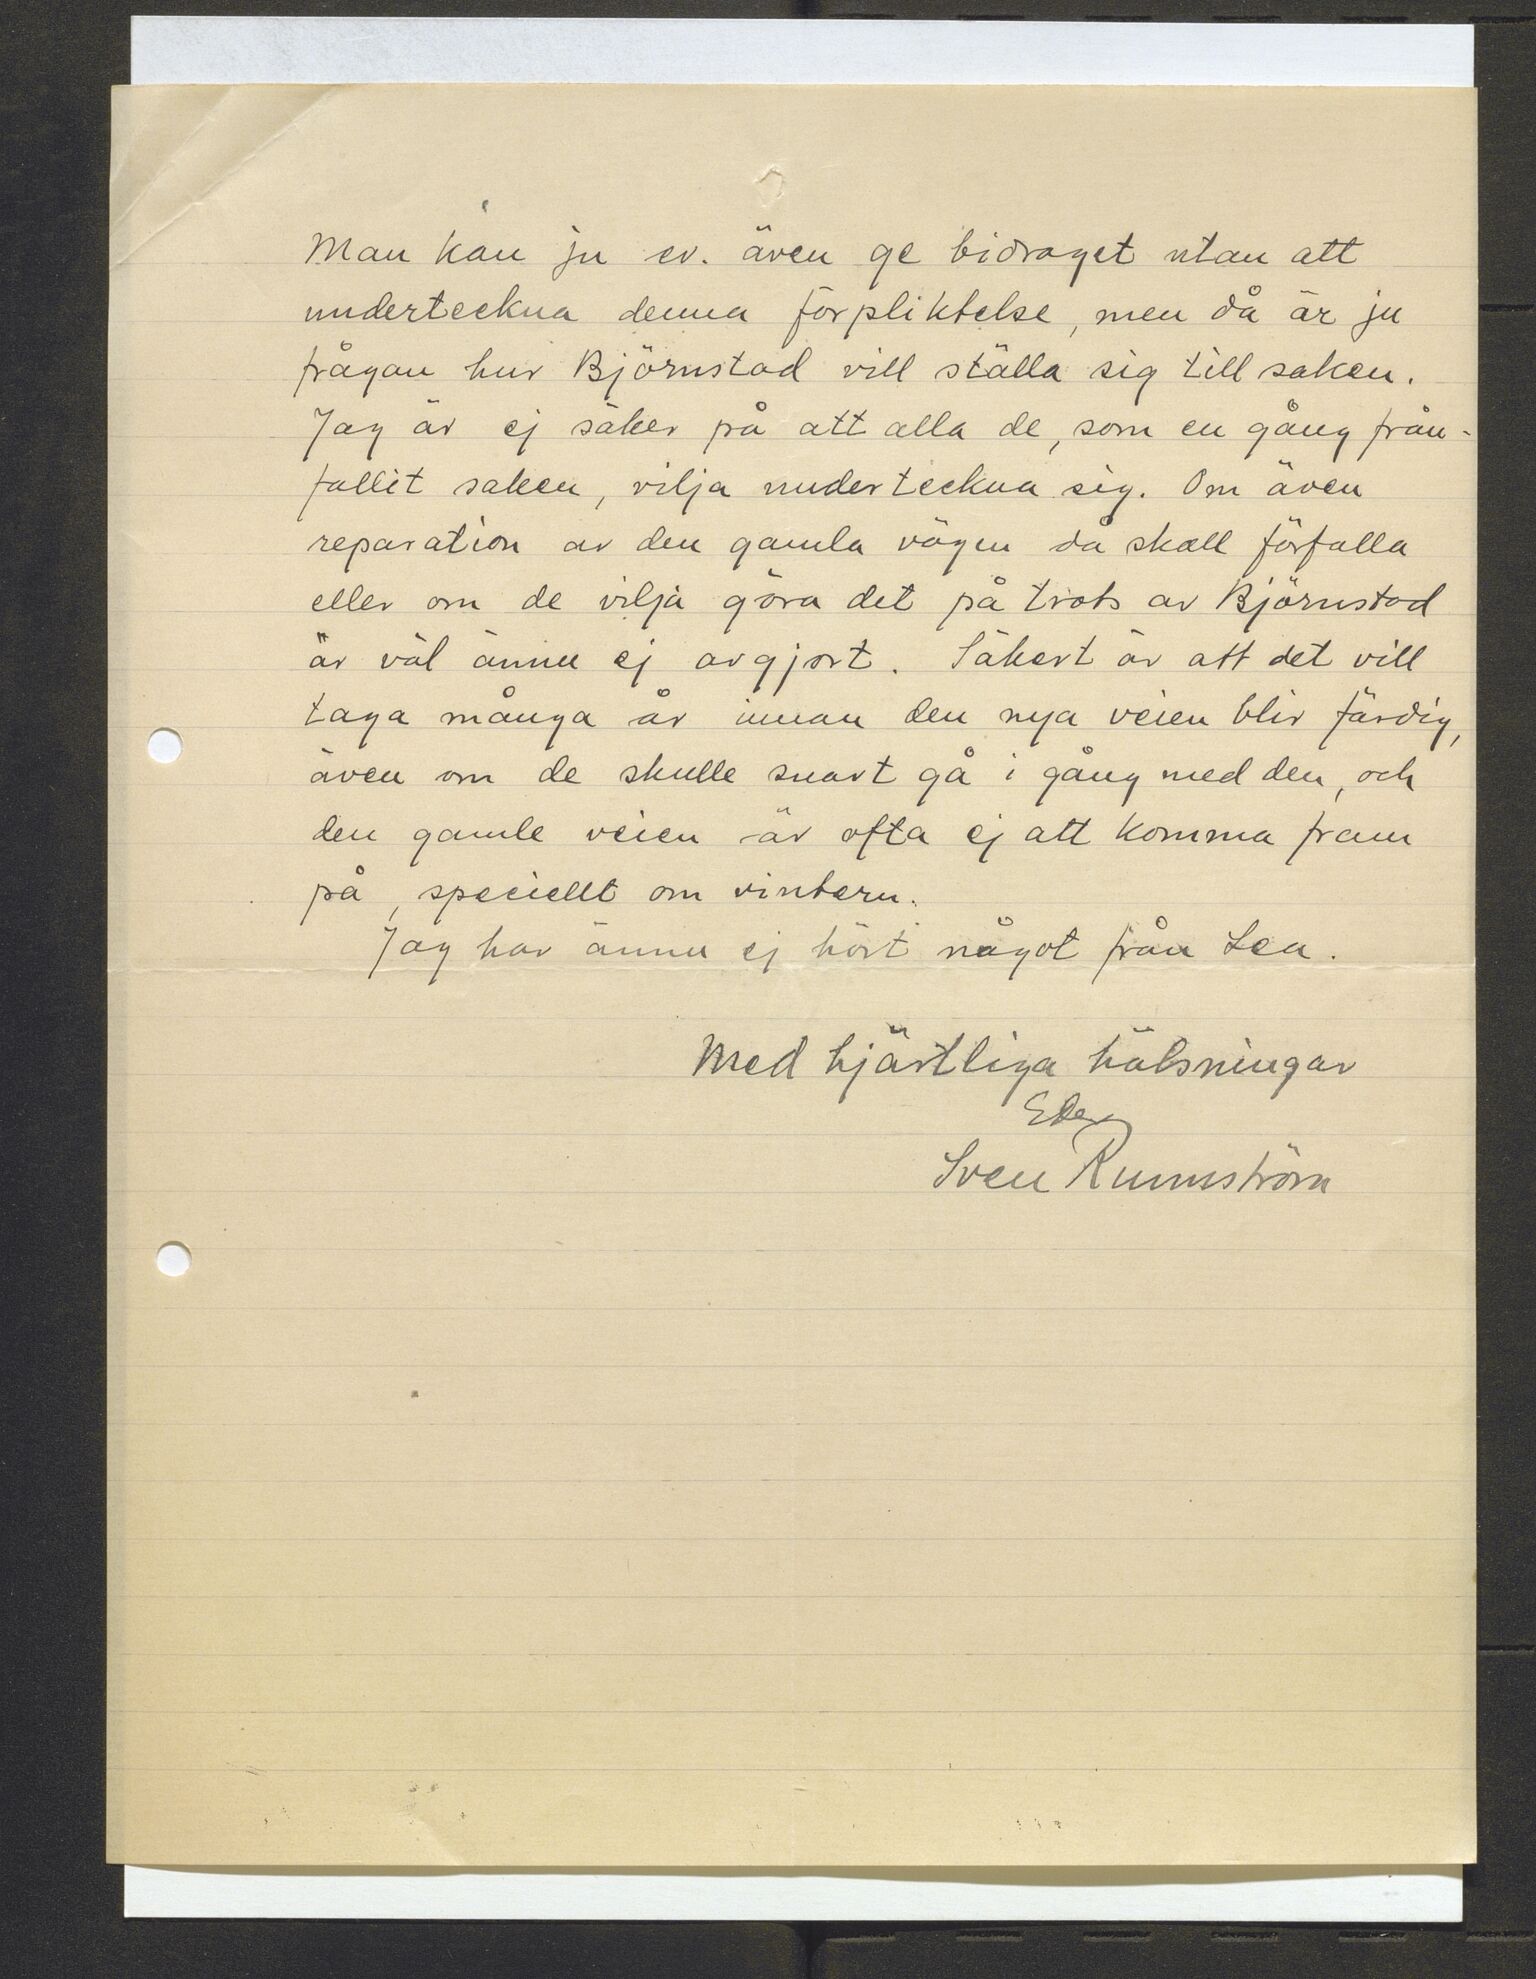 Man kan ju ev. även ge bidraget utan att
underteckna denna förpliktelse, men då är ju
frågan hur Björnstad vill ställa sig till saken.
Jag är ej säker på att alla de, som en gång från-
fallit saken, vilja underteckna sig. Om även
reparation av den gamla vägen då skall förfalla
eller om de vilja göra det på trots av Björnstad
är väl ännu ej avgjort. Säkert är att det vill
taga många år innan den nya veien blir färdig,
även om de skulle snart gå i gång med den, och
den gamle veien är ofta ej att komma fram
på, speciellt om vintern.
Jag har ännu ej hört något från Lea.
Med hjärtliga hälsningar
Eder
Sven Rummström